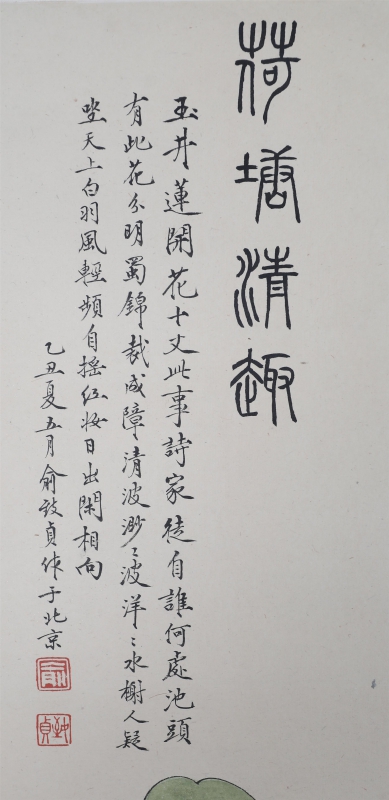 荷塘清趣
玉井蓮開花十丈此事詩家徒自誰何處池頭
有此花分明蜀錦裁成障清波渺〻波洋〻水榭人疑
坐天上白羽風輕頻自搖红妆日出閑相向
乙丑夏五月俞致貞作于北京
俞
致貞